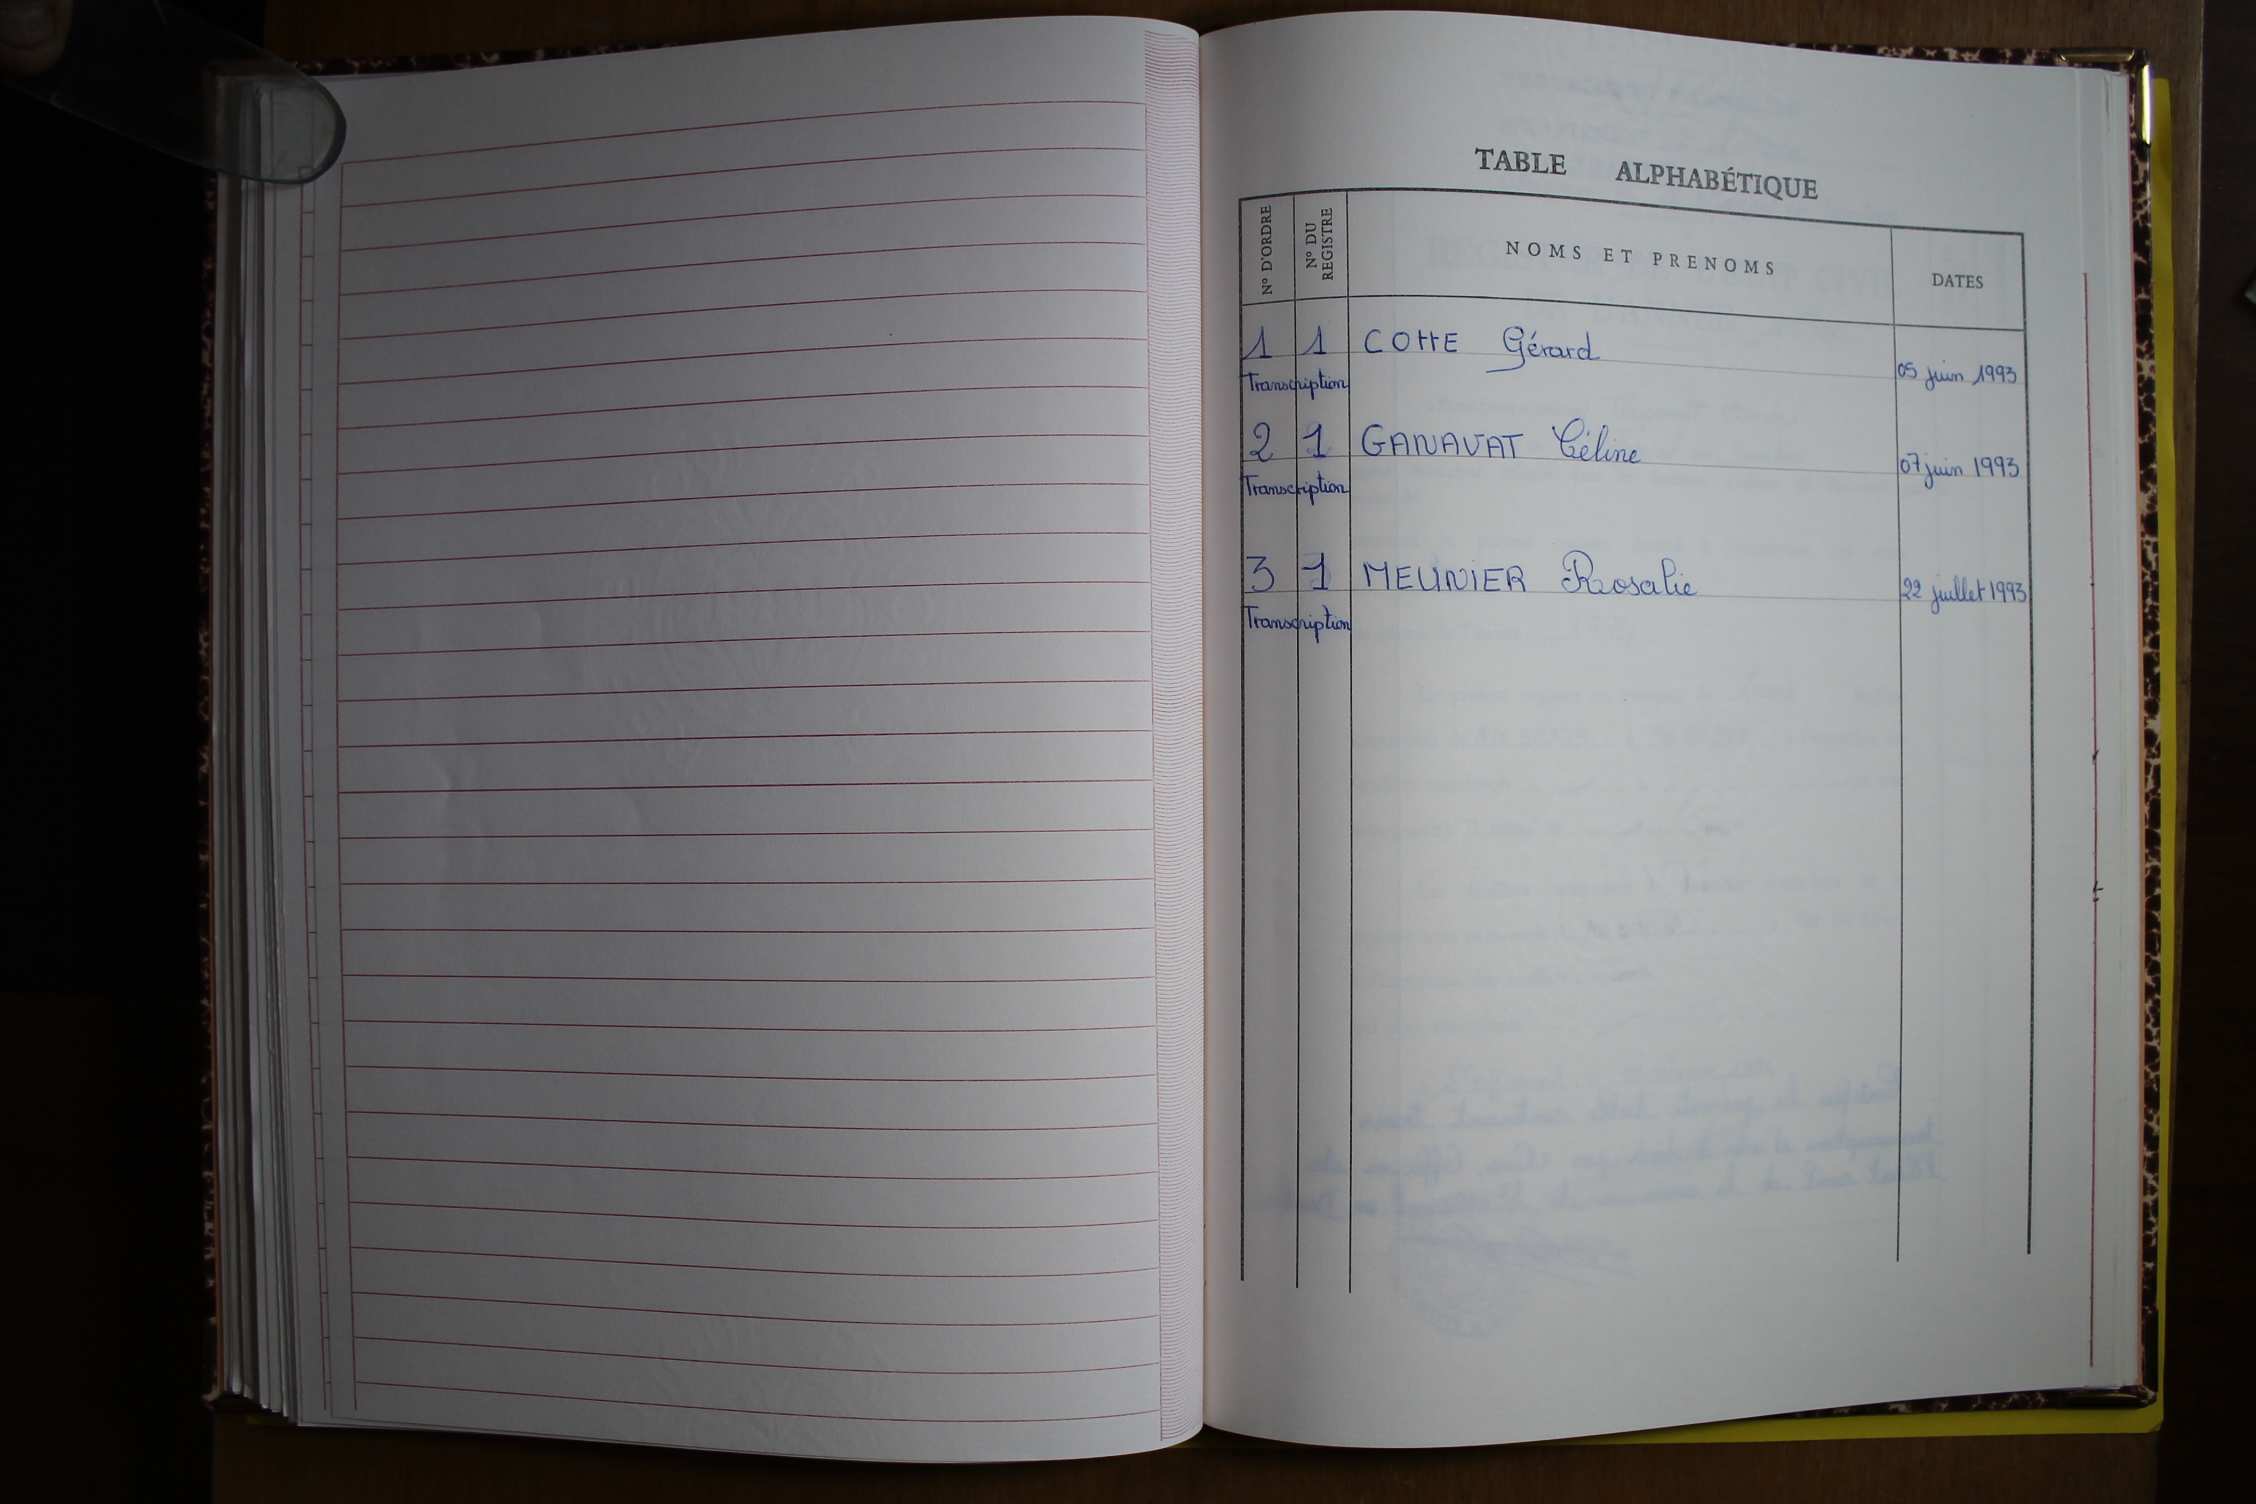 TABLE ALPHABÉTIQUE
N° D'ORDRE
N° DU REGISTRE
NOMS ET PRENOMS
DATES
1 1 COTTE Gérard 05 juin 1993
Transcription
2 1 GANAVAT Céline 07 juin 1993
Transcription
3 1 MEUNIER Rosalie 22 juillet 1993
Transcription